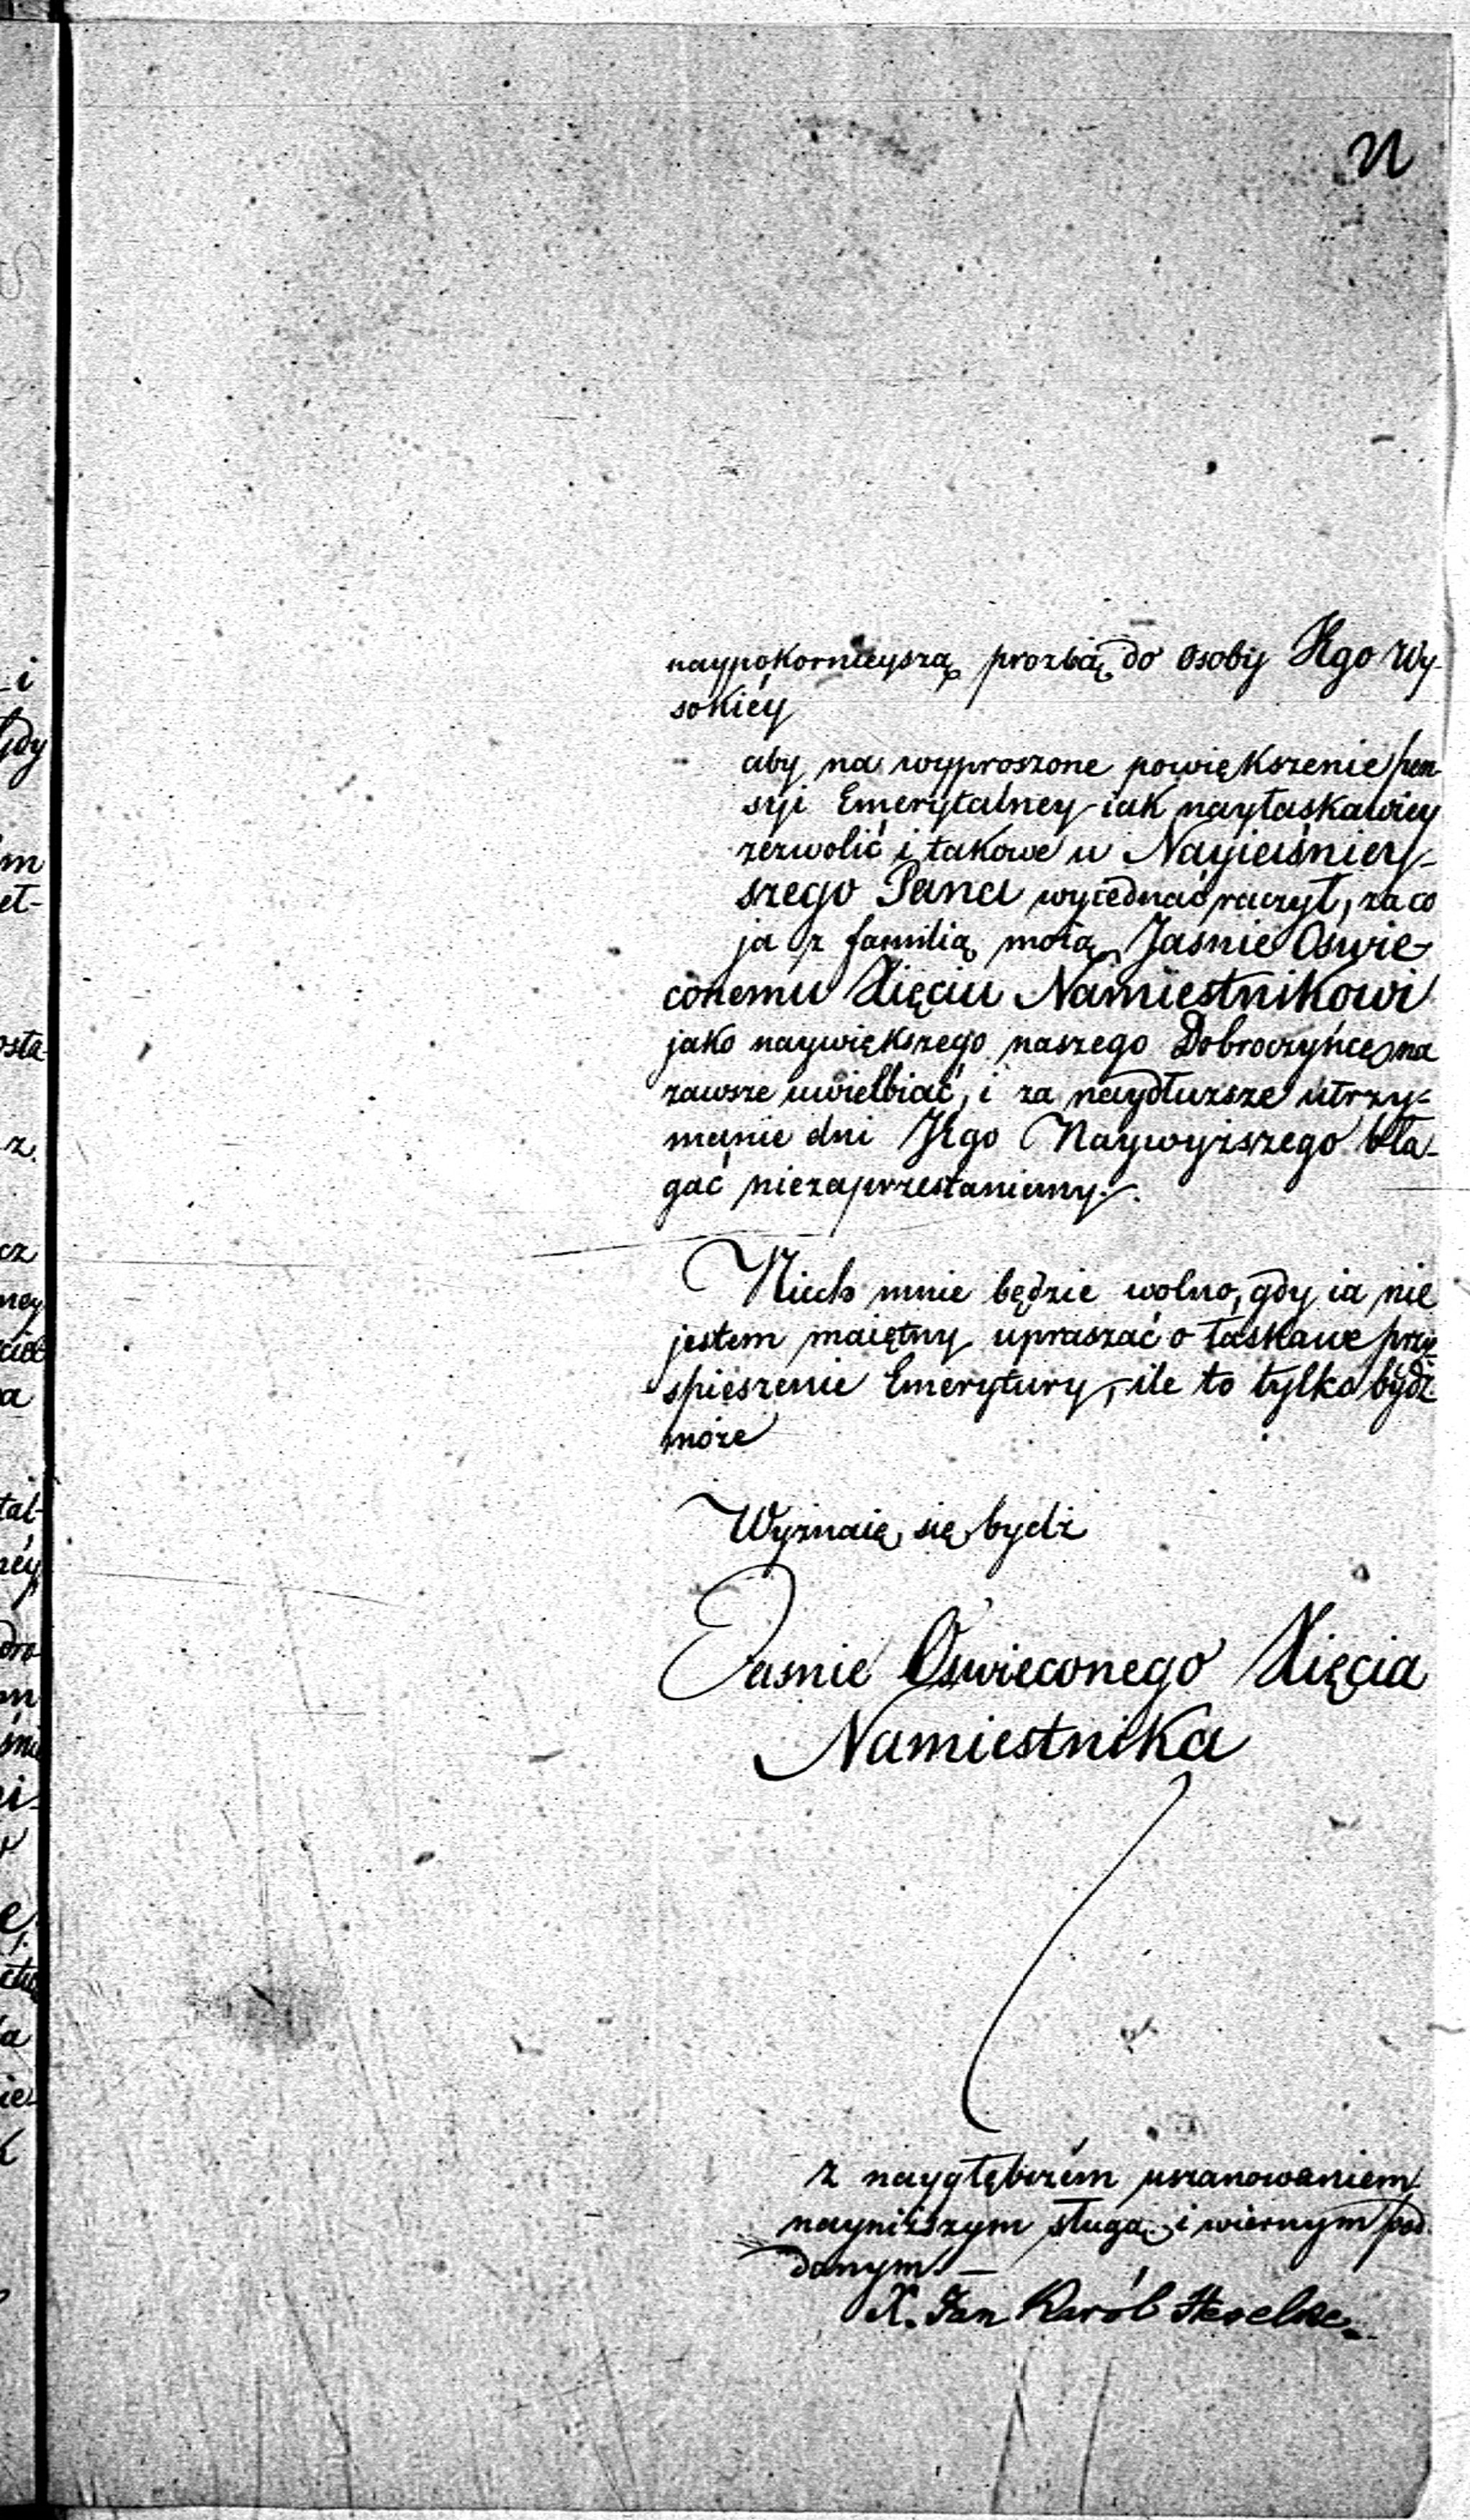 n
naypokornieyszą prozbą do Osoby Jego Wy-
sokiéy
aby na wyproszone powiększenie pen-
syi Emerytalney iak nayłaskawiey
zezwolić i takowe u Nayieśniey-
szego Pana wyiednać raczył, za co
ja z familią moią Jaśnie Oświe-
conemu Xięciu Namiestnikowi
jako naywiększego naszego Dobroczyńcę na
zawsze uwielbiać, i za naydłuższe utrzy-
manie dni Jego Naywyższego bła-
gać niezaprzestaniemy.
Niech mnie będzie wolno, gdy ia nie
jestem maiętny upraszać o łaskawe przy-
spieszenie Emerytury, ile to tylko bydź
może
Wyznaię się bydz
Jaśnie Oświeconego Xięcia
Namiestnika
z naygłębszém uszanowaniem
nayniższym sługą i wiernym pod
danym —
X. Jan Karól